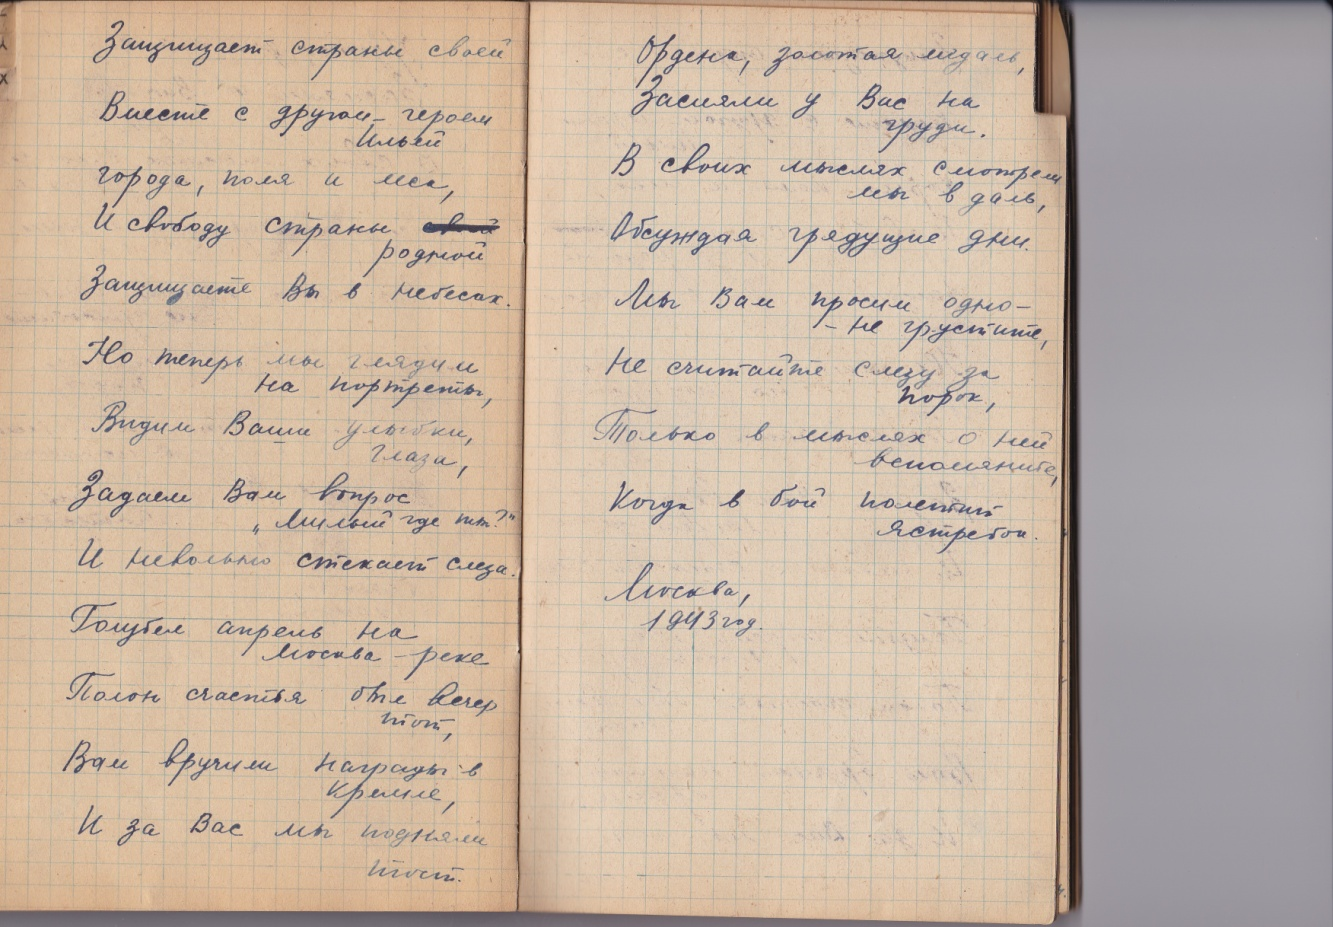 Защищает страны своей
Вместе с другом - героем
Ильей
города, поля и леса,
И свободу страны
родной
Защищаете Вы в небесах.
Но теперь мы глядим
на портреты,
Видим Ваши улыбки,
глаза,
Задаем Вам вопрос
„Милый где ты?"
И невольно стекает слеза.
Голубел апрель на
Москва-реке
Полон счастья был вечер
тот,
Вам вручили награды в
Кремле,
И за Вас мы подняли
тост.
Ордена, золотая медаль,
Засияли у Вас на
груди.
В своих мыслях смотрели
мы в даль,
Обсуждая грядущие дни.
Мы Вам просим одно-
- не грустите,
Не считайте слезу за
порок,
Только в мыслях о ней
вспомяните,
Когда в бой полетит
ястребок.
Москва,
1943 год.